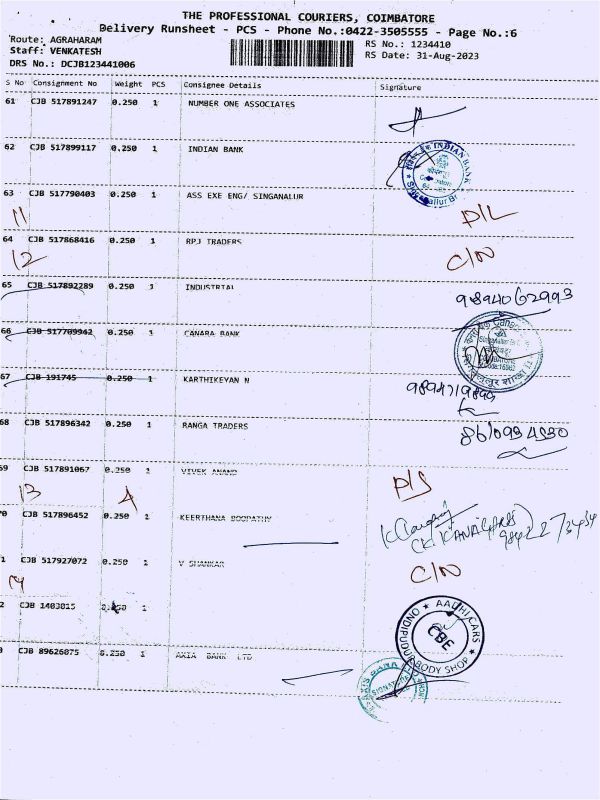 THE PROFESSIONAL COURIERS, COIMBATORE
Delivery Runsheet - PCS - Phone No.:0422-3505555 - Page No.:6
Route: AGRAHARAM
Staff: VENKATESH
DRS No.: DCJB123441006
RS No.: 1234410
RS Date: 31-Aug-2023
S No Consignment No Weight PCS Consignee Details Signature
61 CJB 517891247 0.250 1 NUMBER ONE ASSOCIATES
62 CJB 517899117 0.250 1 INDIAN BANK
INDIAN BANK
63 CJB 517790403 0.250 1 ASS EXE ENG/ SINGANALUR
11 D/L
64 CJB 517868416 0.250 1 RPJ TRADERS
12 C/N
65 CJB 517892289 0.250 1 INDUSTRIAL
9894062993
66 CJB 517709942 0.250 1 CANARA BANK
67 CJB 191745 0.250 1 KARTHIKEYAN N
68 CJB 517896342 0.250 1 RANGA TRADERS
69 CJB 517891067 0.250 1 VIVEK ANAND
13 D/S
70 CJB 517896452 0.250 1 KEERTHANA BOOPATHY
71 CJB 517927072 0.250 1 V SHANKAR
14 C/N
72 CJB 1403015 0.250 1
AADHI CARS
CBE
ONDIPUDUR BODY SHOP
CJB 89626075 0.250 1 AXIA BANK LTD
AXIS BANK LTD